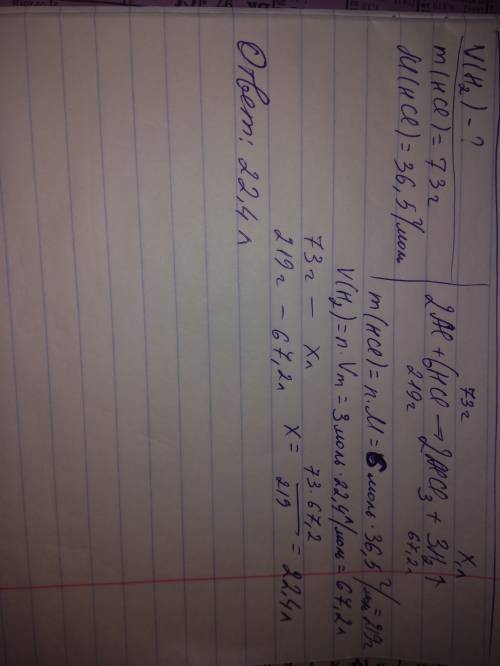 V(H₂) - ?
m(HCl) = 73 г
M(HCl) = 36,5 г/моль
73 г X л
2Al + 6HCl → 2AlCl₃ + 3H₂↑
219 г 67,2 л
m(HCl) = n · M = 6 моль · 36,5 г/моль = 219 г
V(H₂) = n · Vm = 3 моль · 22,4 л/моль = 67,2 л
73 г — X л
219 г — 67,2 л X = 73 · 67,2 / 219 = 22,4 л
Ответ: 22,4 л